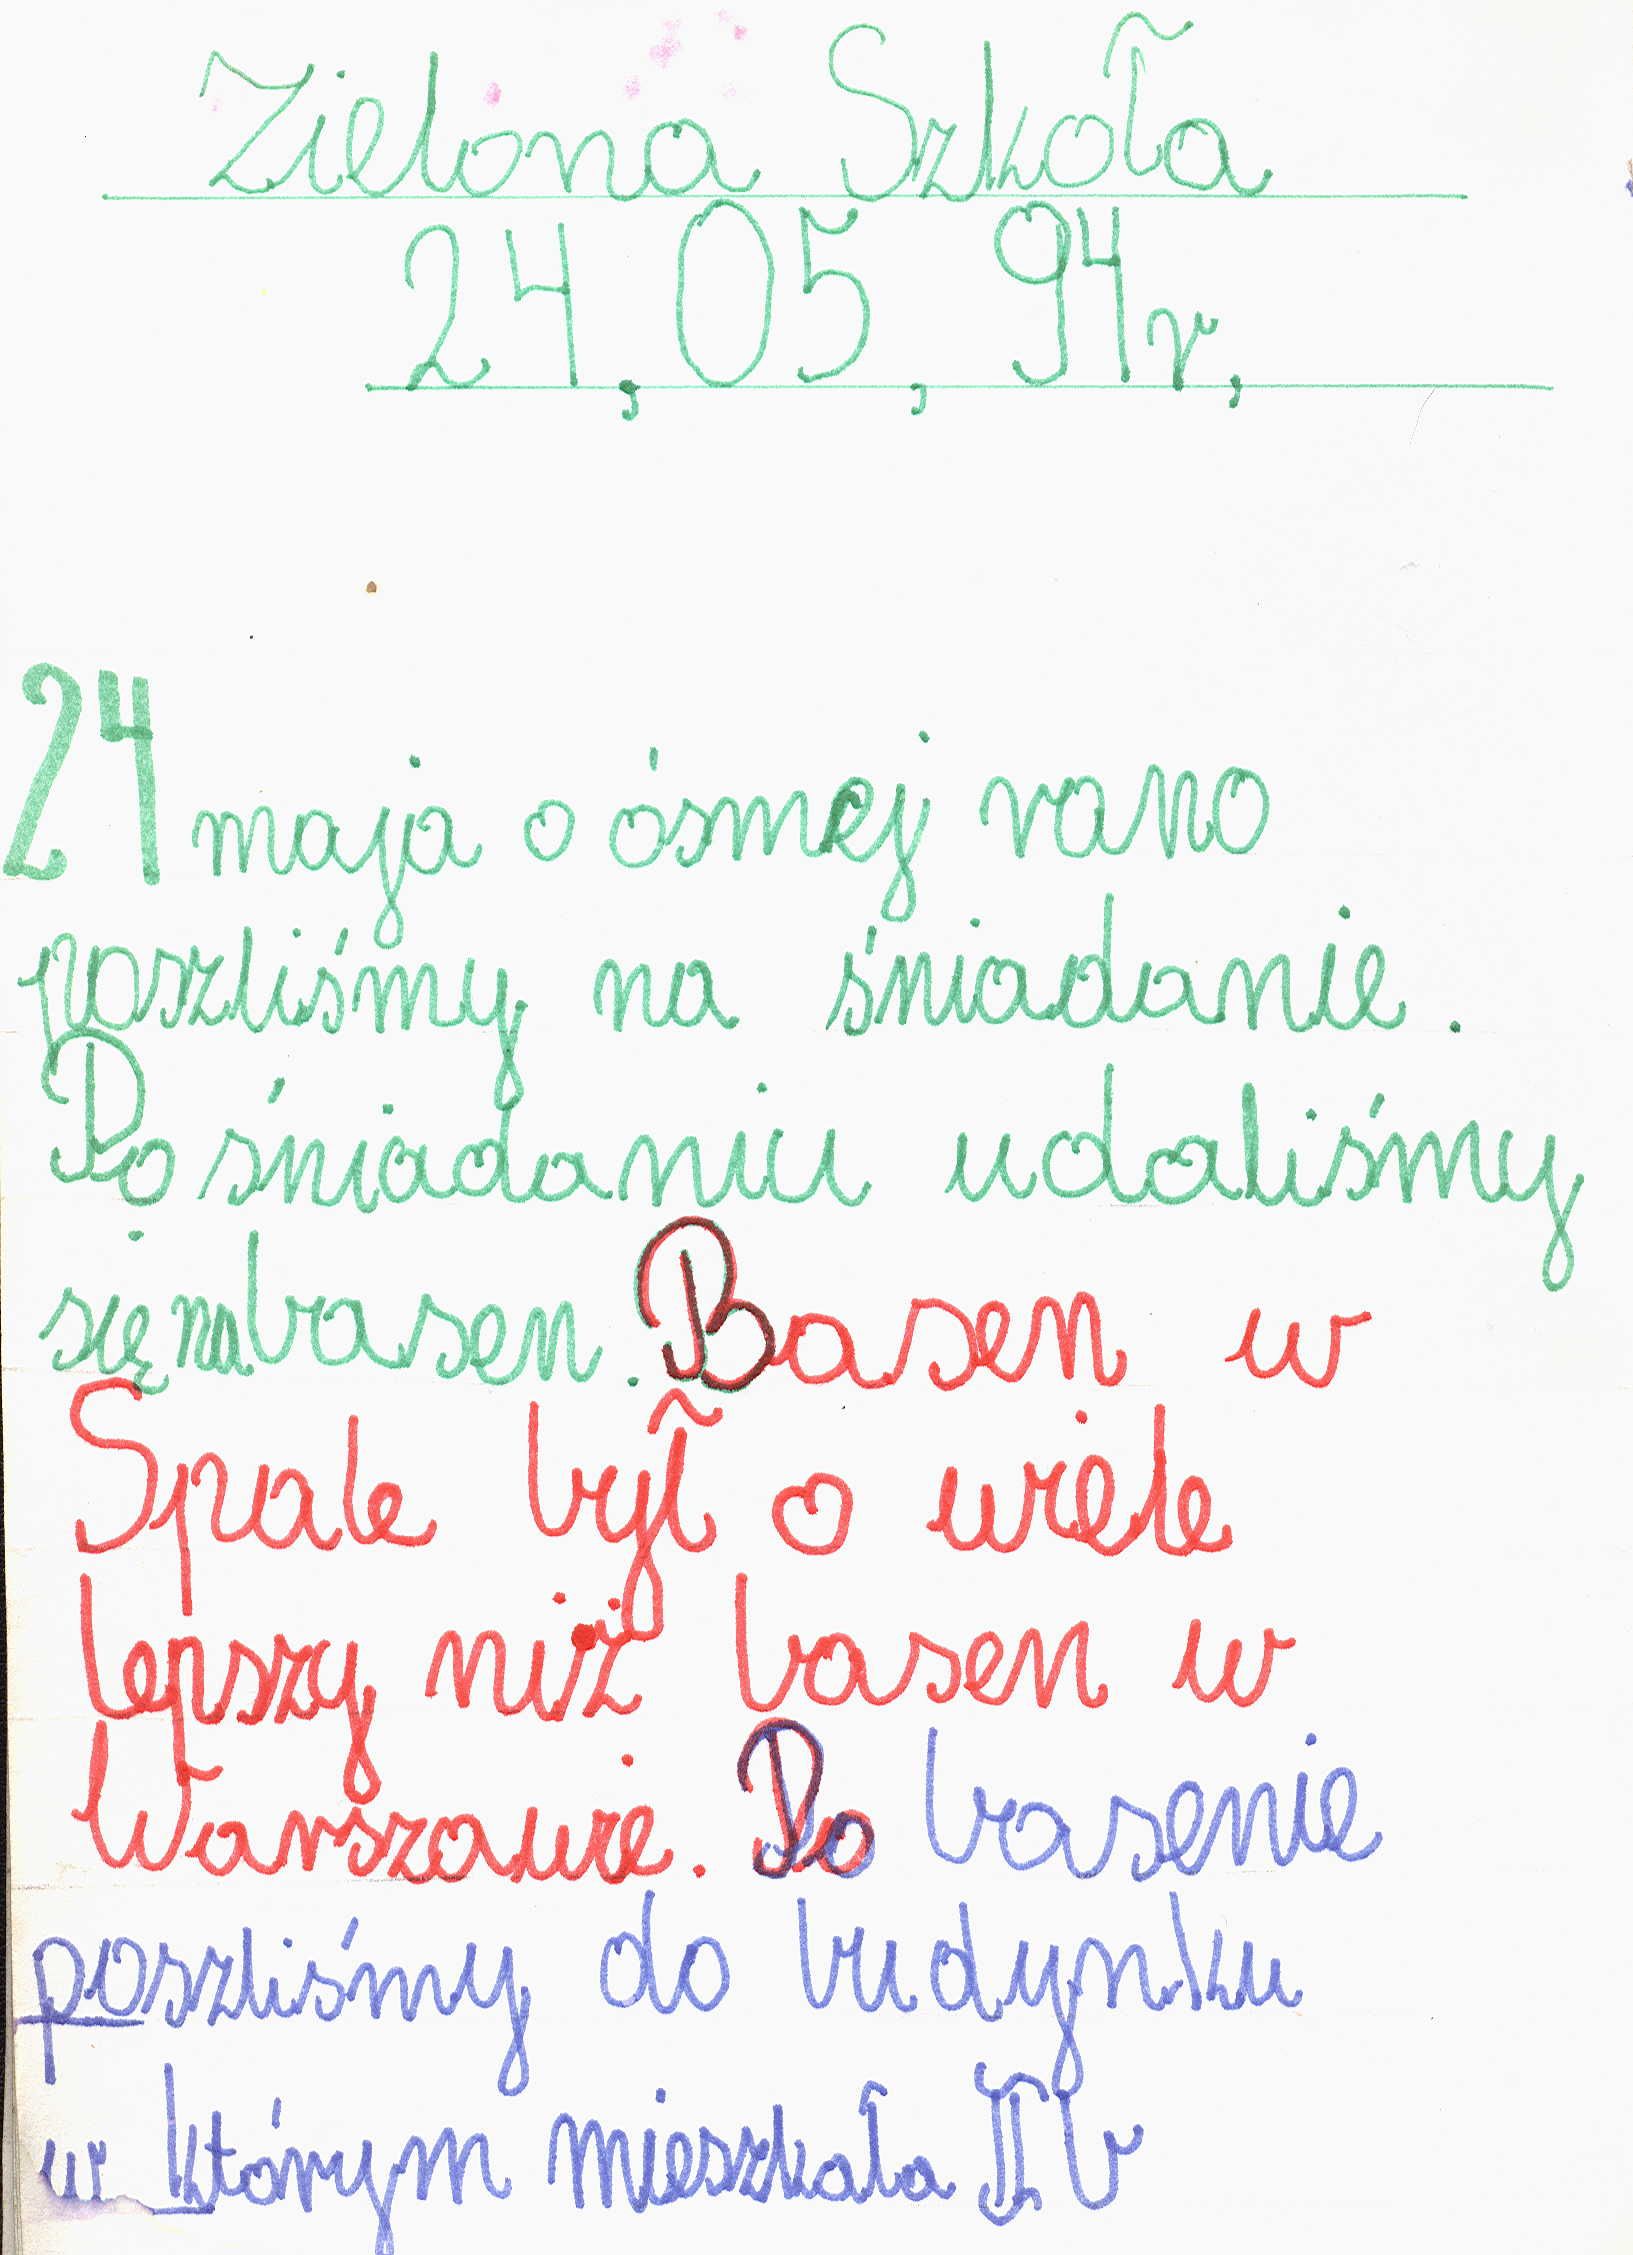 Zielona Szkoła
24.05.94r.
24 maja o ósmej rano
poszliśmy na śniadanie.
Po śniadaniu udaliśmy
się na basen. Basen w
Spale był o wiele
lepszy niż basen w
Warszawie. Po basenie
poszliśmy do budynku
w którym mieszkała II b